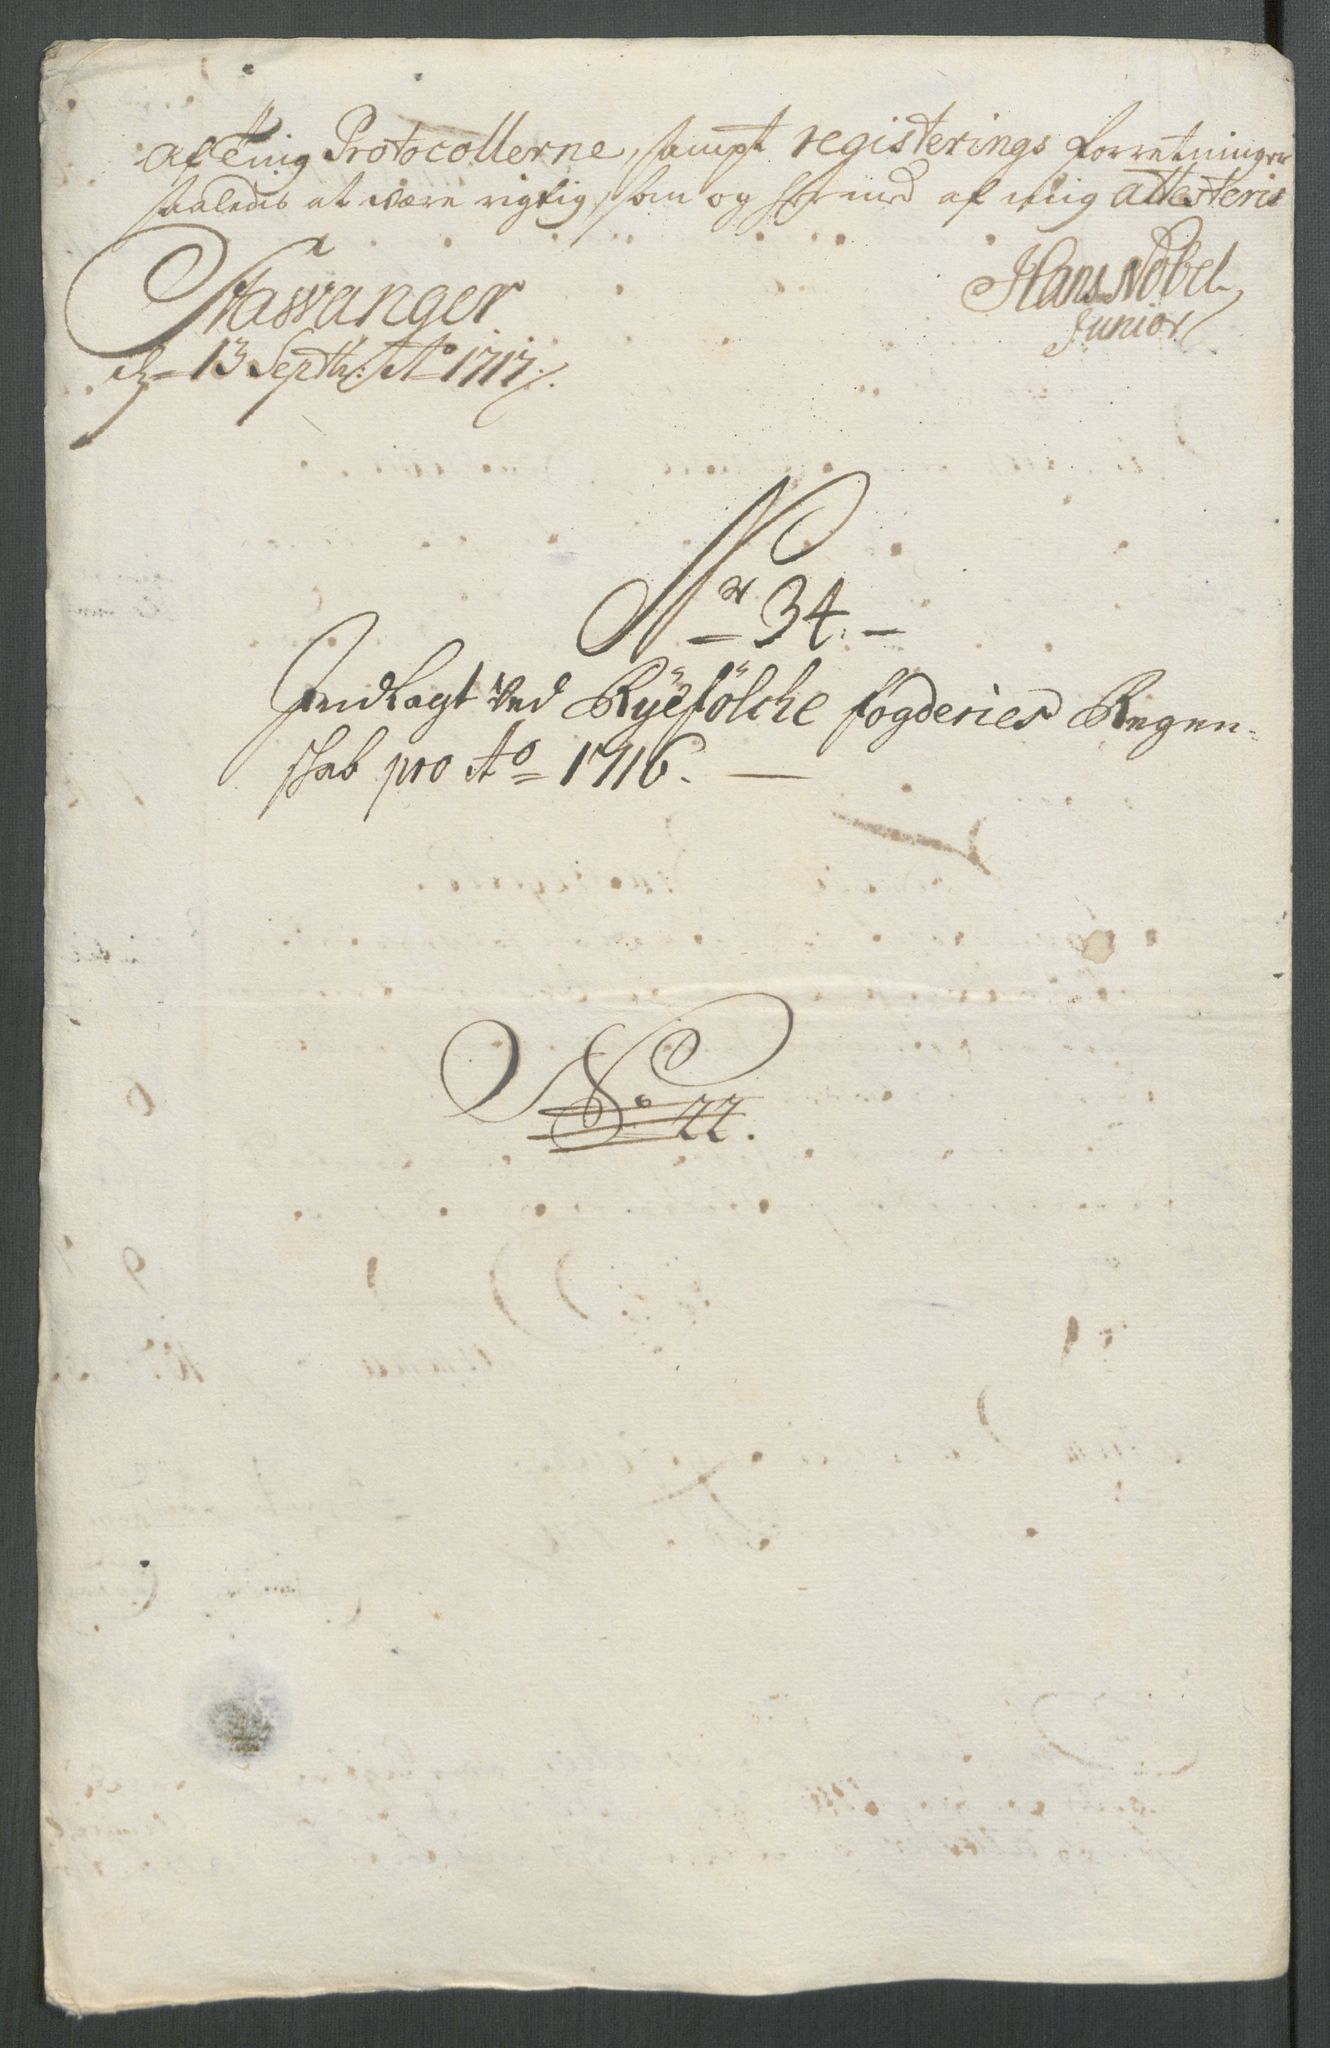 af ting Protocollerne, sampt registerings forretninger
saaledis at være rigtig, som og hermed af mig attesteris
Stasvanger
d. 13 Septbr: Ao 1717.
Hans Nobel
Junior
Nr 34.
Indlagt ved Ryefølche fogderies Regen-
skab pro Ao 1716.
No 22.